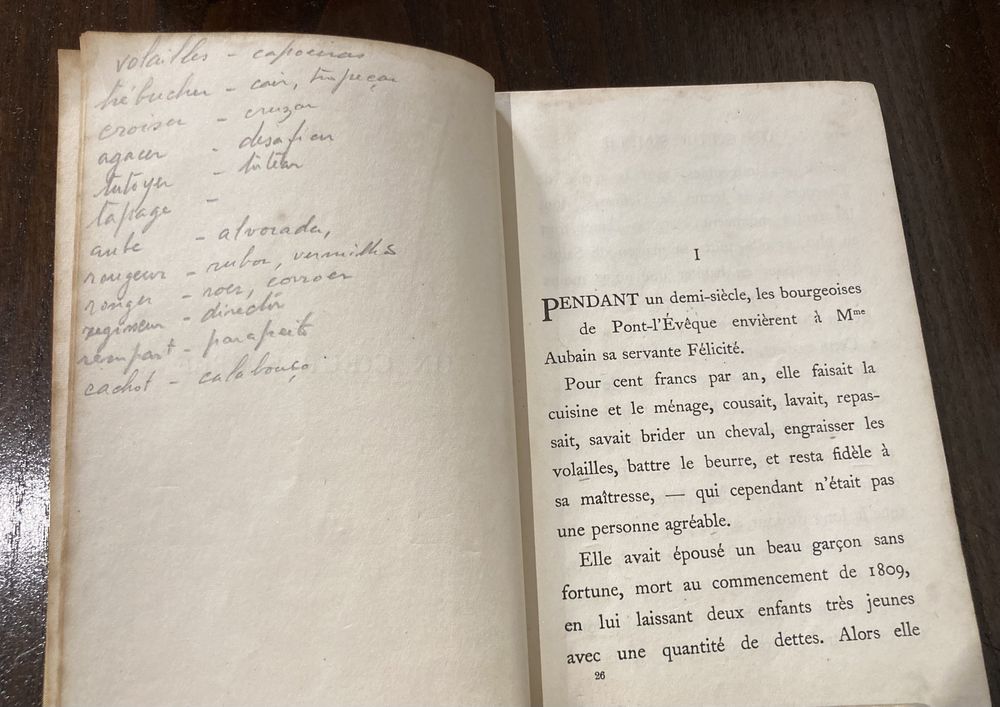 volailles - capoeiras
trébucher - cair, tropeçar
croiser - cruzar
agacer - desafiar
tutoyer - tutear
tapage -
aube - alvorada,
rougeur - rubor, vermelhão
ronger - roer, corroer
regisseur - director
rempart - parapeito
cachot - calabouço
I
PENDANT un demi-siècle, les bourgeoises
de Pont-l'Évêque envièrent à Mme
Aubain sa servante Félicité.
Pour cent francs par an, elle faisait la
cuisine et le ménage, cousait, lavait, repas-
sait, savait brider un cheval, engraisser les
volailles, battre le beurre, et resta fidèle à
sa maîtresse, — qui cependant n'était pas
une personne agréable.
Elle avait épousé un beau garçon sans
fortune, mort au commencement de 1809,
en lui laissant deux enfants très jeunes
avec une quantité de dettes. Alors elle
26